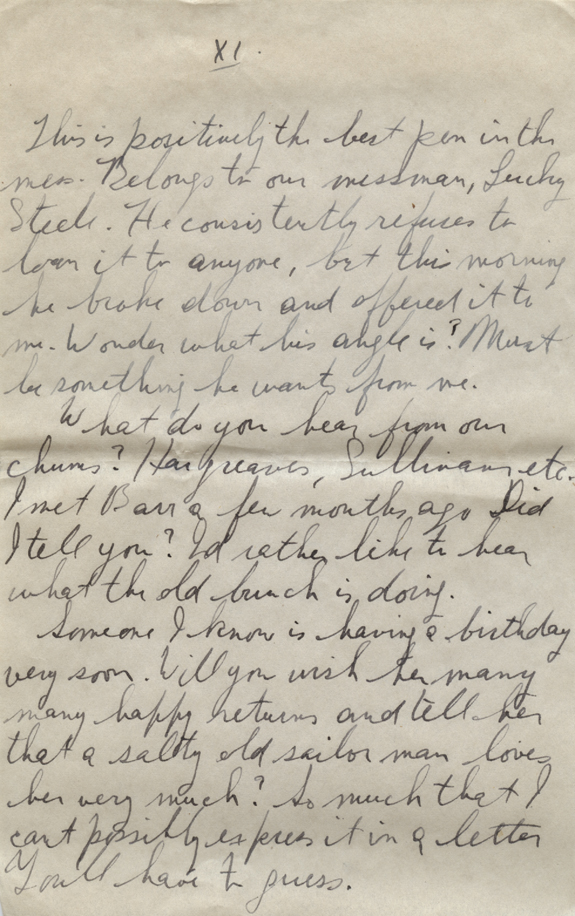 XI.
This is positively the best pen in the
mess. Belongs to our messman, Lucky
Steele. He consistently refuses to
loan it to anyone, but this morning
he broke down and offered it to
me. Wonder what his angle is? Must
be something he wants from me.
What do you hear from our
chums? Hargreaves, Sullivans etc.
I met Barr a few months ago Did
I tell you? I'd rather like to hear
what the old bunch is doing.
Someone I know is having a birthday
very soon. Will you wish her many
many happy returns and tell her
that a salty old sailor man loves
her very much? So much that I
can't possibly express it in a letter
You'll have to guess.